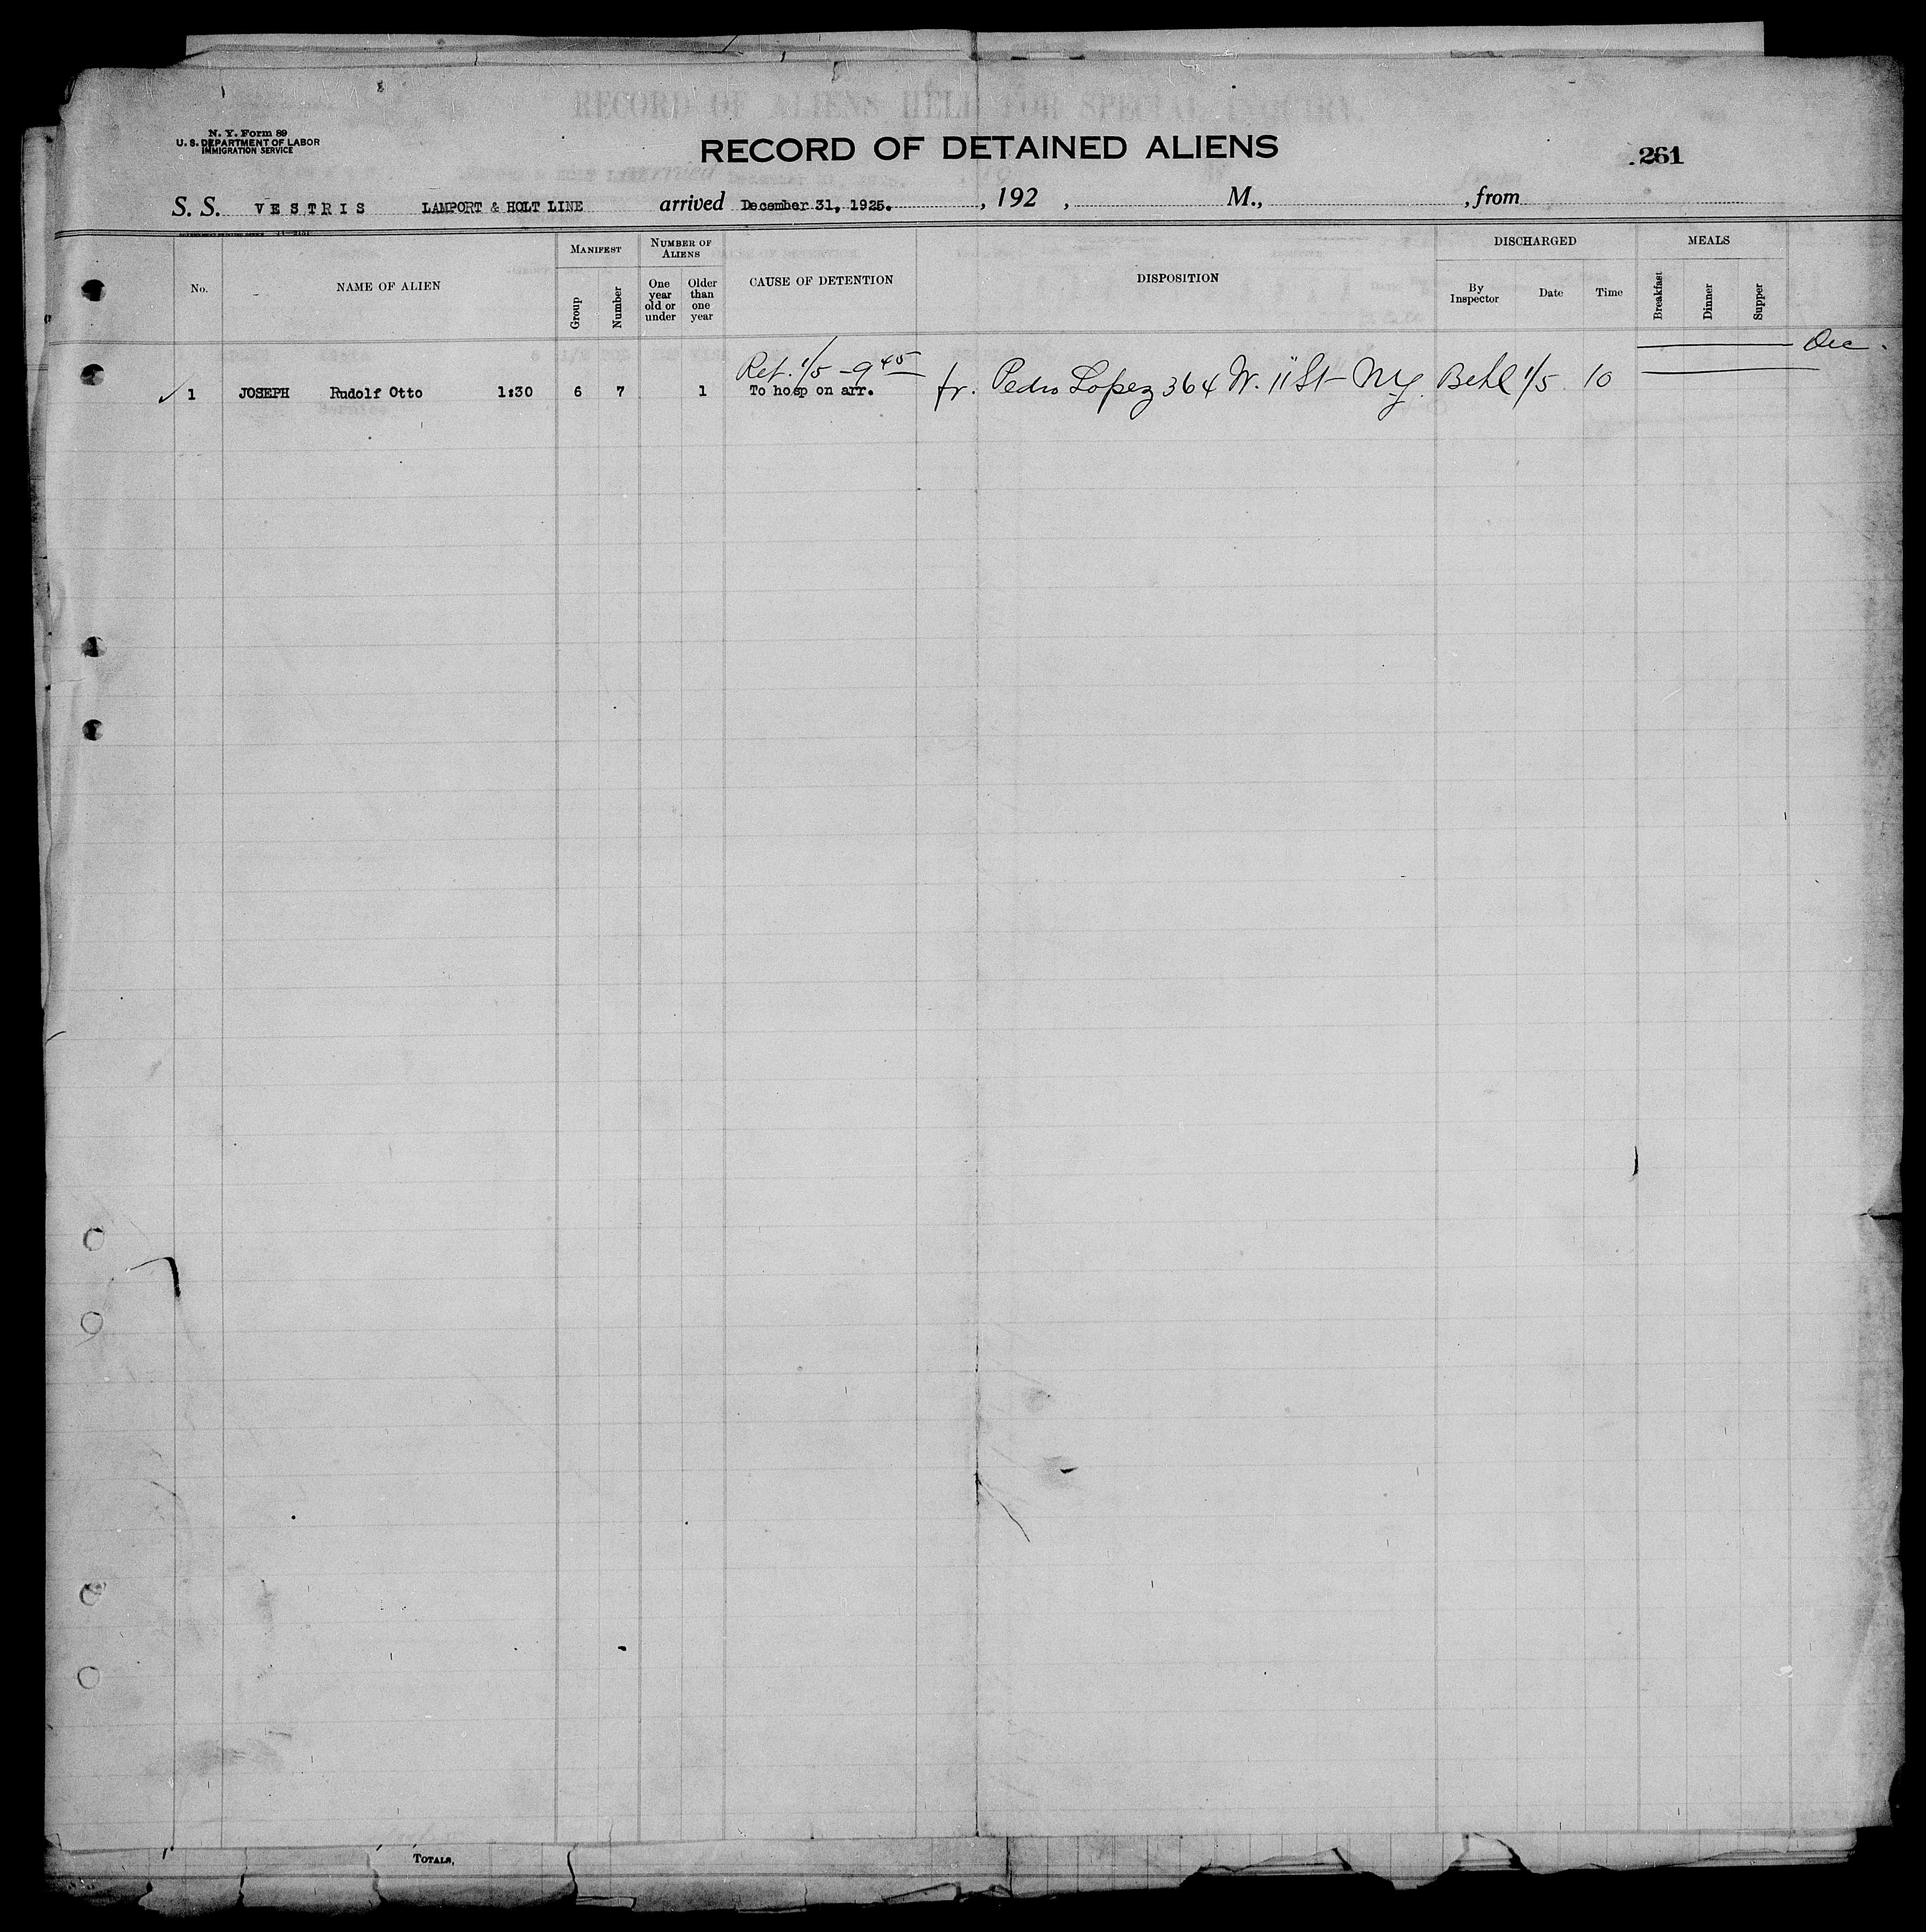 N. Y. Form 89
U. S. DEPARTMENT OF LABOR
IMMIGRATION SERVICE
RECORD OF DETAINED ALIENS
261
S. S. VESTRIS LAMPORT & HOLT LINE arrived December 31, 1925. , 192 , M., , from
No.
NAME OF ALIEN
MANIFEST
Group
Number
NUMBER OF ALIENS
One year old or under
Older than one year
CAUSE OF DETENTION
DISPOSITION
DISCHARGED
By Inspector
Date
Time
MEALS
Breakfast
Dinner
Supper
Ret. 1/5 - 9 45
Dec.
1 JOSEPH Rudolf Otto 1:30 6 7 1 To hosp on arr. fr. Pedro Lopez 364 W. 11 St NY. Behl 1/5 10
TOTALS,